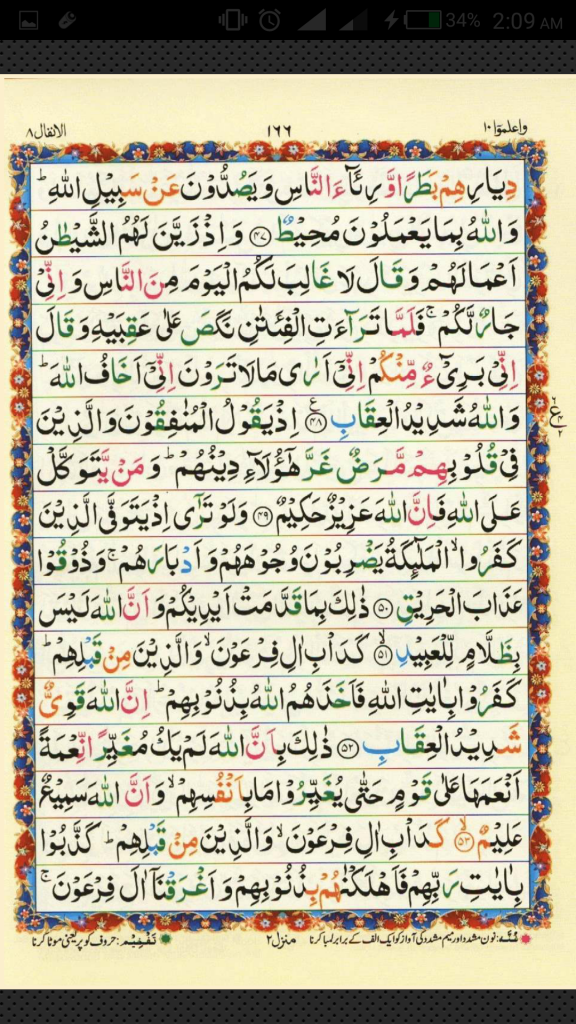 34% 2:09 AM
واعلموا ١٠ ١٦٦ الانفال ٨
دِيَارِهِمْ بَطَرًا وَّ رِئَآءَ النَّاسِ وَ يَصُدُّوْنَ عَنْ سَبِيْلِ اللّٰهِ ؕ
وَ اللّٰهُ بِمَا يَعْمَلُوْنَ مُحِيْطٌ ﴿۴۷﴾ وَ اِذْ زَيَّنَ لَهُمُ الشَّيْطٰنُ
اَعْمَالَهُمْ وَ قَالَ لَا غَالِبَ لَكُمُ الْيَوْمَ مِنَ النَّاسِ وَ اِنِّيْ
جَارٌ لَّكُمْ ۚ فَلَمَّا تَرَآءَتِ الْفِئَتٰنِ نَكَصَ عَلٰى عَقِبَيْهِ وَ قَالَ
اِنِّيْ بَرِيْٓءٌ مِّنْكُمْ اِنِّيْٓ اَرٰى مَا لَا تَرَوْنَ اِنِّيْٓ اَخَافُ اللّٰهَ ؕ
وَ اللّٰهُ شَدِيْدُ الْعِقَابِ ﴿۴۸﴾ اِذْ يَقُوْلُ الْمُنٰفِقُوْنَ وَ الَّذِيْنَ
فِيْ قُلُوْبِهِمْ مَّرَضٌ غَرَّ هٰٓؤُلَآءِ دِيْنُهُمْ ؕ وَ مَنْ يَّتَوَكَّلْ
عَلَى اللّٰهِ فَاِنَّ اللّٰهَ عَزِيْزٌ حَكِيْمٌ ﴿۴۹﴾ وَ لَوْ تَرٰٓى اِذْ يَتَوَفَّى الَّذِيْنَ
كَفَرُوا ۙ الْمَلٰٓئِكَةُ يَضْرِبُوْنَ وُجُوْهَهُمْ وَ اَدْبَارَهُمْ ۚ وَ ذُوْقُوْا
عَذَابَ الْحَرِيْقِ ﴿۵۰﴾ ذٰلِكَ بِمَا قَدَّمَتْ اَيْدِيْكُمْ وَ اَنَّ اللّٰهَ لَيْسَ
بِظَلَّامٍ لِّلْعَبِيْدِ ﴿ۙ۵۱﴾ كَدَاْبِ اٰلِ فِرْعَوْنَ ۙ وَ الَّذِيْنَ مِنْ قَبْلِهِمْ ؕ
كَفَرُوْا بِاٰيٰتِ اللّٰهِ فَاَخَذَهُمُ اللّٰهُ بِذُنُوْبِهِمْ ؕ اِنَّ اللّٰهَ قَوِيٌّ
شَدِيْدُ الْعِقَابِ ﴿۵۲﴾ ذٰلِكَ بِاَنَّ اللّٰهَ لَمْ يَكُ مُغَيِّرًا نِّعْمَةً
اَنْعَمَهَا عَلٰى قَوْمٍ حَتّٰى يُغَيِّرُوْا مَا بِاَنْفُسِهِمْ ۙ وَ اَنَّ اللّٰهَ سَمِيْعٌ
عَلِيْمٌ ﴿ۙ۵۳﴾ كَدَاْبِ اٰلِ فِرْعَوْنَ ۙ وَ الَّذِيْنَ مِنْ قَبْلِهِمْ ؕ كَذَّبُوْا
بِاٰيٰتِ رَبِّهِمْ فَاَهْلَكْنٰهُمْ بِذُنُوْبِهِمْ وَ اَغْرَقْنَآ اٰلَ فِرْعَوْنَ ۚ
غنّہ: نون مشدد اور میم مشدد کی آواز کو ایک الف کے برابر لمبا کرنا منزل ۲ تفخیم: حروف کو پُر یعنی موٹا کرنا